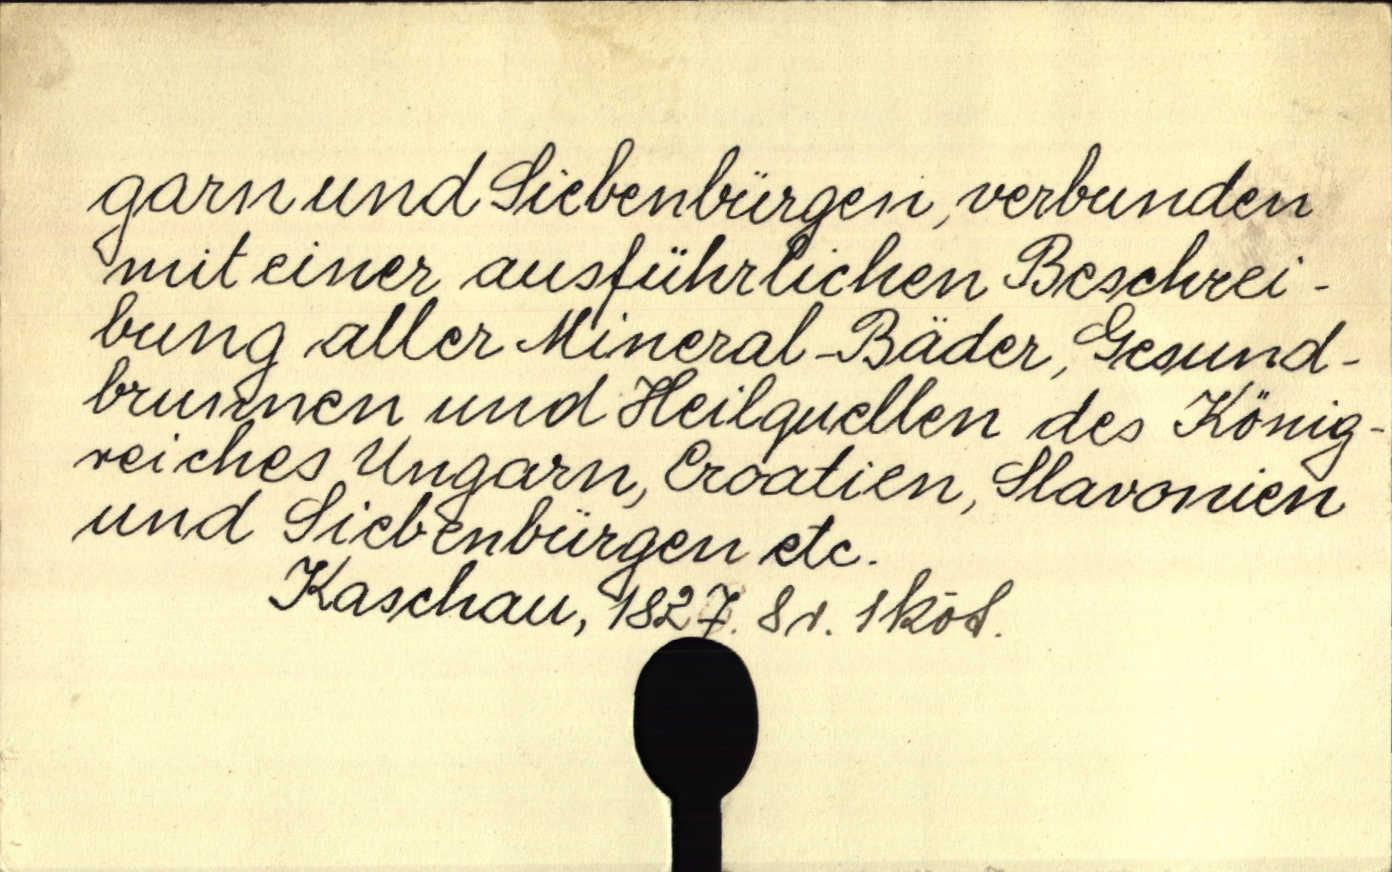 garn und Siebenbürgen, verbunden
mit einer ausführlichen Beschrei-
bung aller Mineral-Bäder, Gesund-
brunnen und Heilquellen des König-
reiches Ungarn, Croatien, Slavonien
und Siebenbürgen etc.
Kaschau, 1827. 8r. 1 köt.